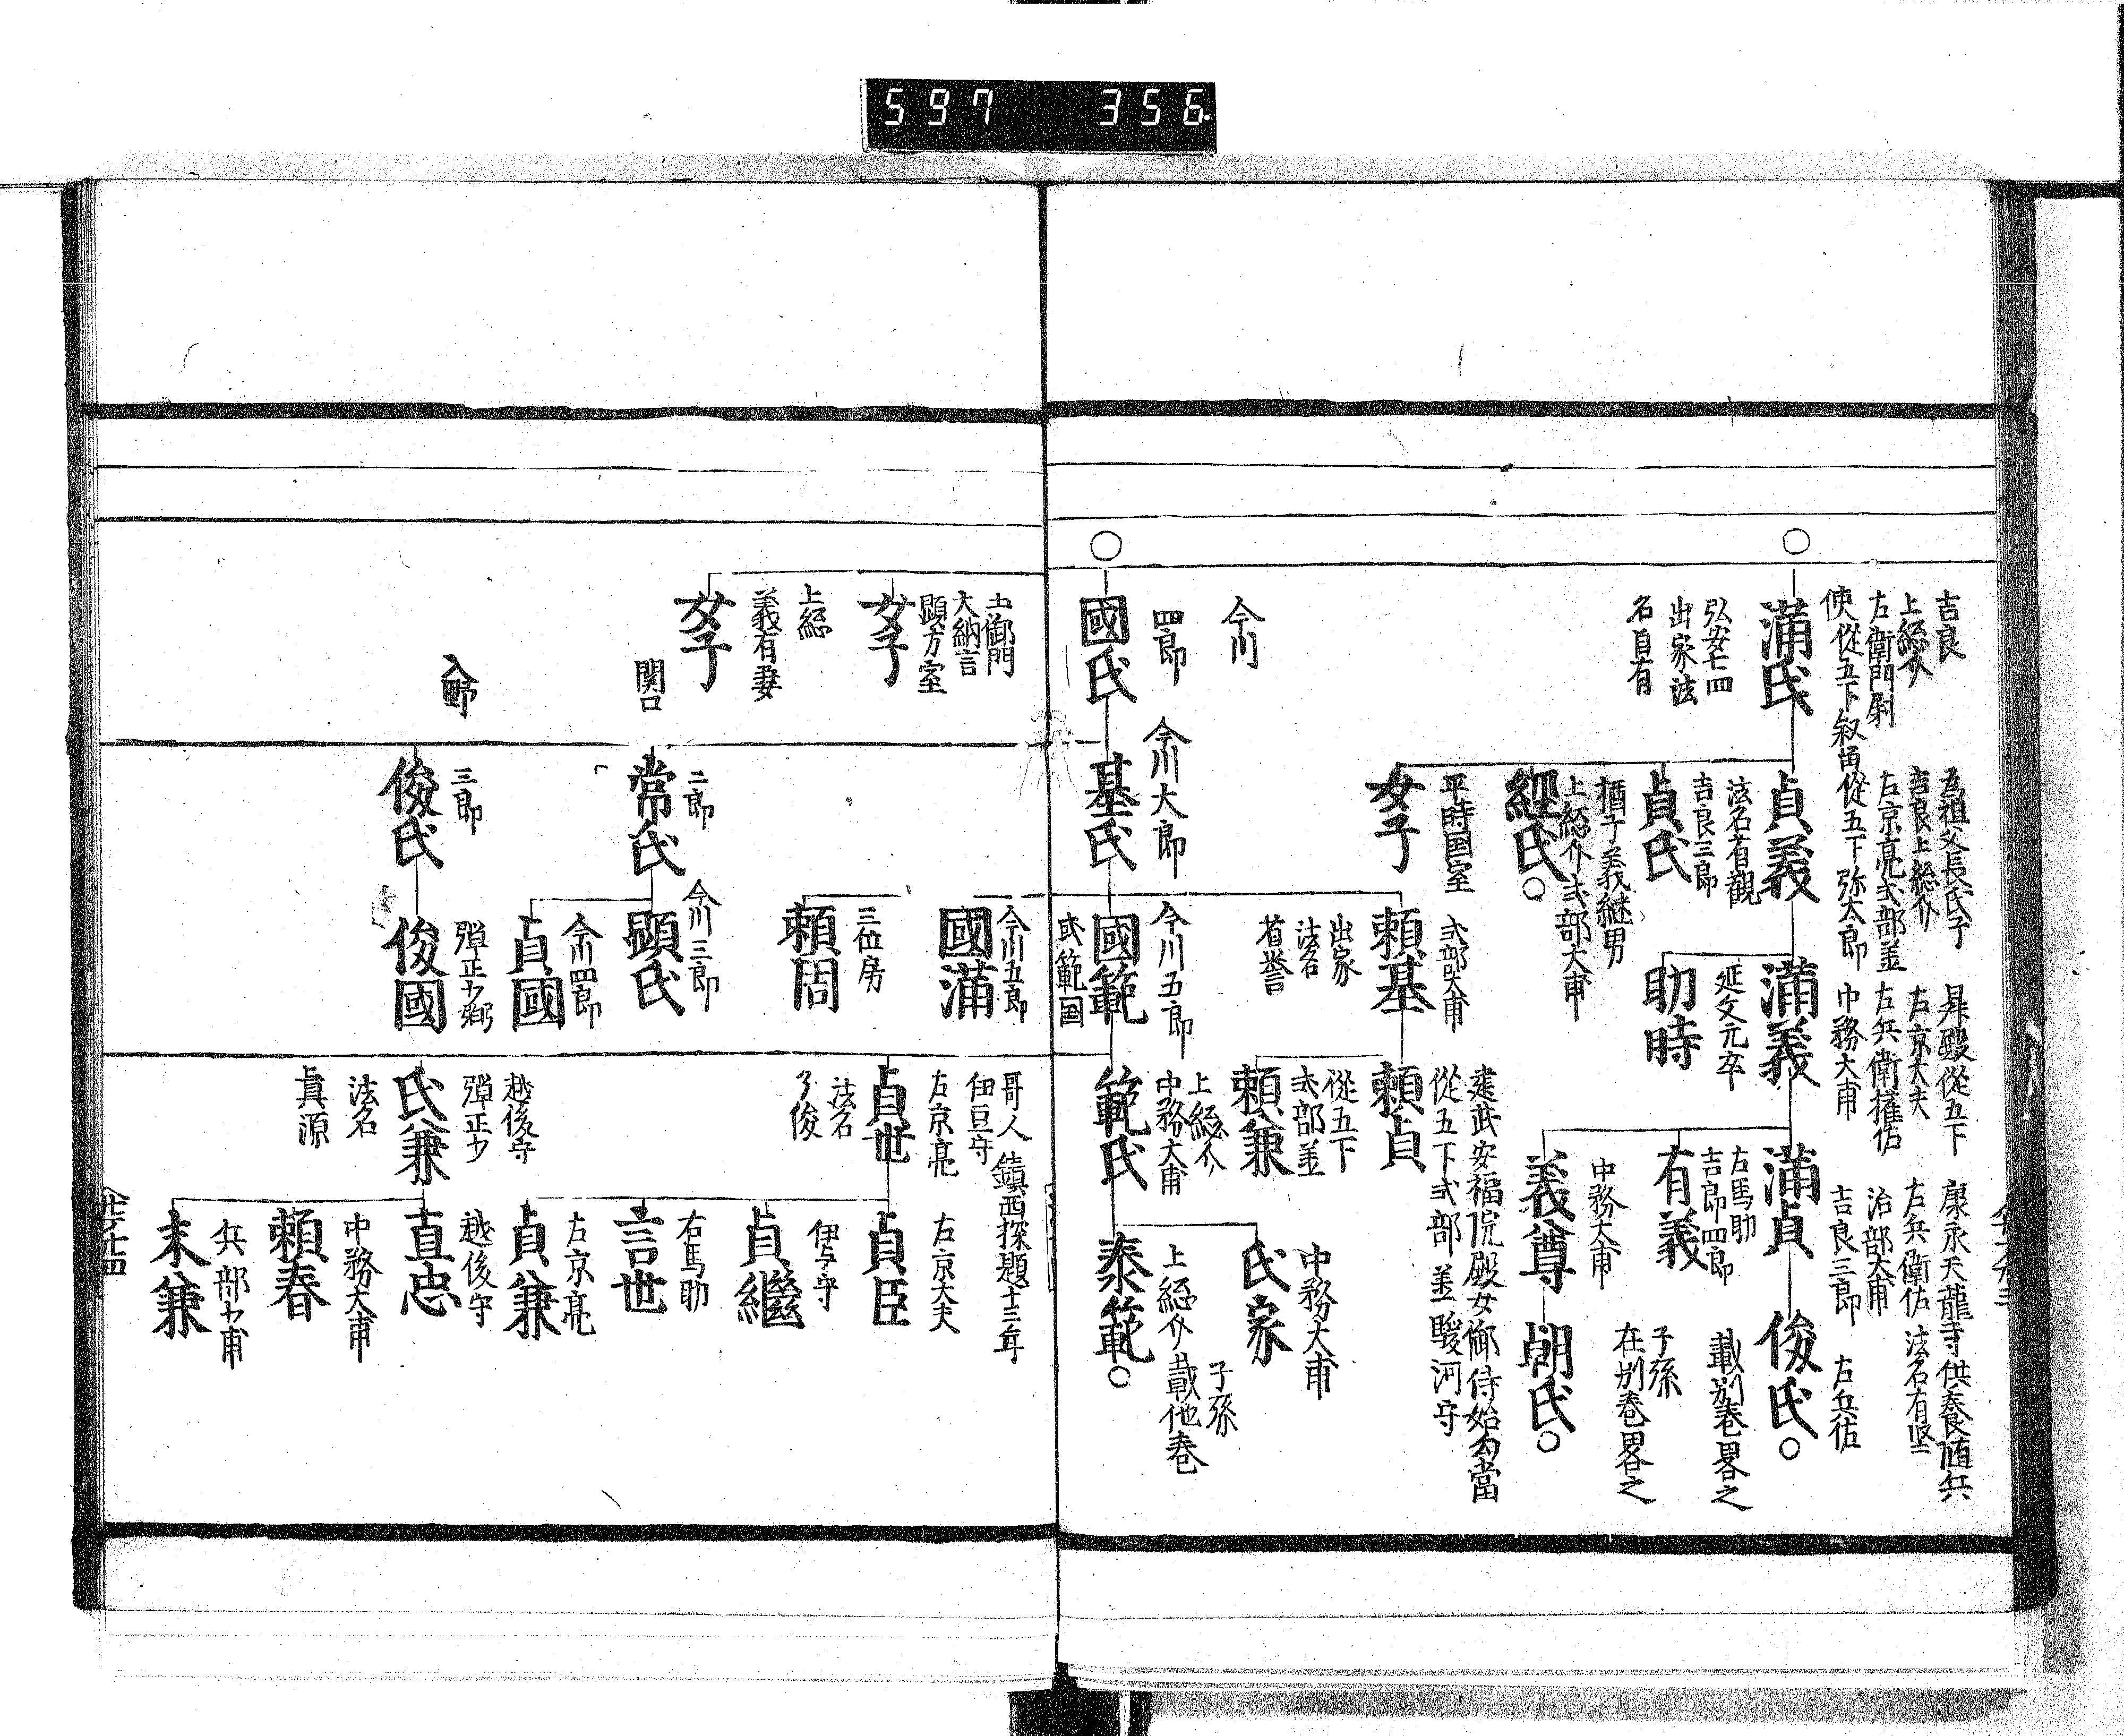 597 356
吉良
上総介
左衛門尉
使從五下叙留
滿氏
弘安七四
出家法
名自有
為祖父長氏子
吉良上総介
左京亮式部丞
從五下弥太郎
貞義
法名有観
吉良三郎
貞氏
楢子義継男
上総介式部大甫
經氏
平時国室
女子
昇殿從五下
右京大夫
左兵衛權佐
中務大甫
滿義
延文元卒
助時
康永天龍寺供養随兵
左兵衛佐 法名有堅
治部大甫
吉良三郎
滿貞
右馬助
吉郎四郎
有義
中務大甫
義尊
左兵佐
俊氏
載別巻畧之
子孫
在別巻畧之
朝氏
今川
四郎
國氏
今川太郎
基氏
式部大甫
頼基
出家
法名
省誉
今川五郎
國範
或範国
建武安福院殿女御侍始勾當
從五下式部丞駿河守
頼貞
從五下
式部丞
頼兼
上総介
中務大甫
範氏
中務大甫
氏家
子孫
上総介載他巻
泰範
土御門
大納言
顕方室
女子
上総
義有妻
女子
今川五郎
國滿
三位房
頼周
関口
二郎
常氏
今川三郎
顕氏
今川四郎
貞國
入野
三郎
俊氏
彈正少弼
俊國
哥人 鎮西探題十三年
伊豆守
左京亮
貞世
法名
了俊
左京大夫
貞臣
伊与守
貞繼
右馬助
言世
左京亮
貞兼
越後守
彈正少
氏兼
法名
真源
越後守
直忠
中務大甫
頼春
兵部少甫
末兼